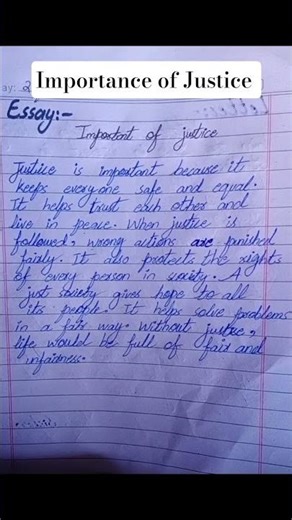 ay:
Importance of Justice
Essay:-
Important of justice
Justice is important because it
keeps everyone safe and equal.
It helps trust each other and
live in peace. When justice is
followed, wrong actions are punished
fairly. It also protect the rights
of every person in society. A
just society gives hope to all
its people. It helps solve problems
in a fair way. Without justice,
life would be full of fair and
unfairness.